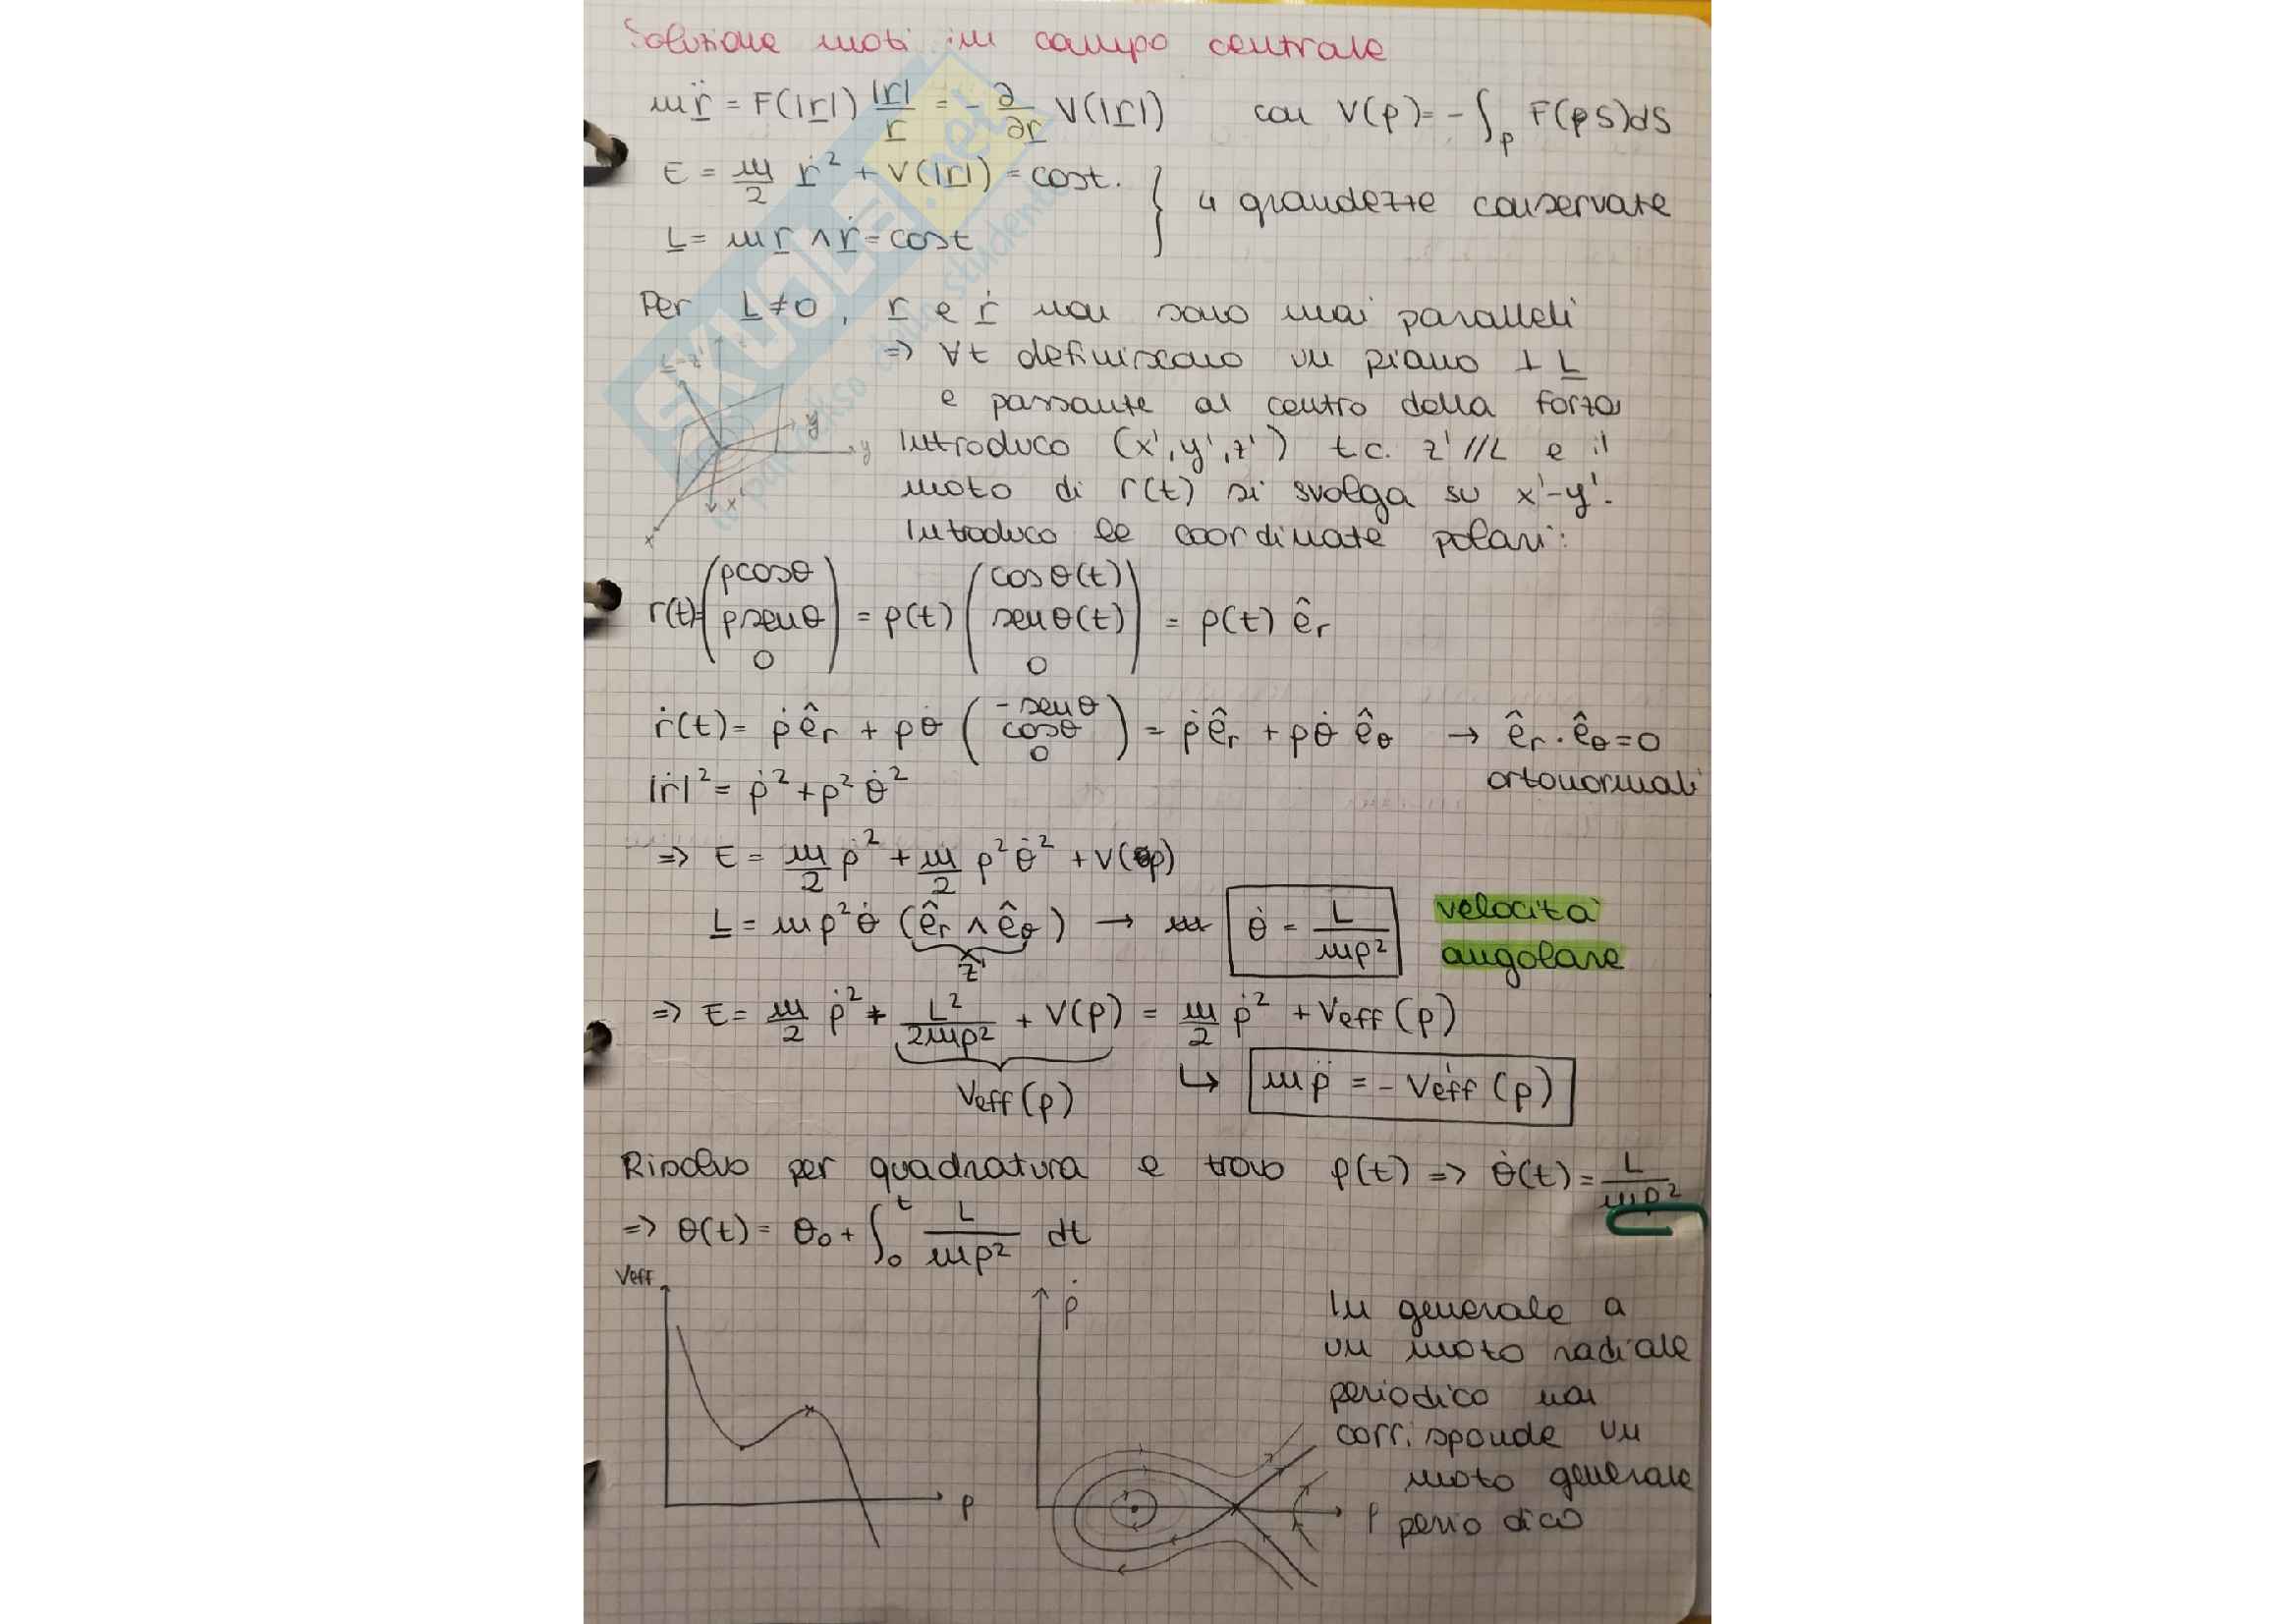 Soluzione moti in campo centrale
m r̈ = F(|r|) |r|/r = - ∂/∂r V(|r|) con V(ρ) = - ∫ρ F(ρS)dS
E = m/2 ṙ² + V(|r|) = cost.
4 grandezze conservate
L = m r ∧ ṙ = cost
Per L ≠ 0, r e ṙ non sono mai paralleli
=> ∀t definiscono un piano ⊥ L
e passante al centro della forza
Introduco (x', y', z') t.c. z' // L e il
moto di r(t) si svolga su x'-y'.
Introduco le coordinate polari:
y
y
x'
x
r(t) = (ρcosθ ρsenθ 0) = ρ(t) (cosθ(t) senθ(t) 0) = ρ(t) êr
ṙ(t) = ρ̇ êr + ρθ̇ (-senθ cosθ 0) = ρ̇ êr + ρθ̇ êθ → êr · êθ = 0
ortonormali
|ṙ|² = ρ̇² + ρ² θ̇²
=> E = m/2 ρ̇² + m/2 ρ² θ̇² + V(ρ)
L = mρ²θ̇ (êr ∧ êθ) → θ̇ = L/mρ² velocità
ẑ' angolare
=> E = m/2 ρ̇² + L²/2mρ² + V(ρ) = m/2 ρ̇² + Veff(ρ)
Veff(ρ) ↳ mρ̈ = - V'eff(ρ)
Risolvo per quadratura e trovo ρ(t) => θ̇(t) = L/mρ²
=> θ(t) = θ₀ + ∫₀ᵗ L/mρ² dt
Veff
ρ
ρ̇
ρ
In generale a
un moto radiale
periodico non
corrisponde un
moto generale
periodico
SKUOLA.net